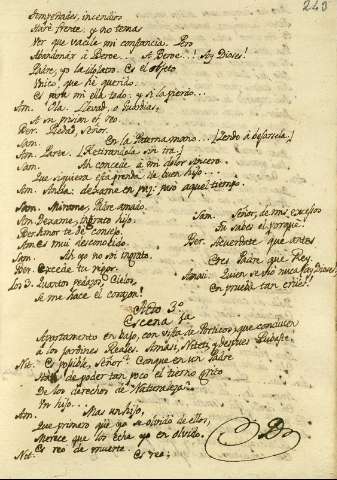 243
Tempestades, incendios
Haré frente y no tema
Ver que vacile mi constancia. Pero
Abandonár à Beroe... A Beroe...! Ay Dioses!
Padre, yo la idolatro. Es el objeto
Unico, que hé querido.
Es para mi ella todo: y si la pierdo...
Am. Ola. Llevad, o Guardias,
A su prision el reo.
Ber. Piedad, Señor.
Sam. En la Paterna mano...
Am. Parte. [Retirandola con ira.]
Sam. Ah concede à mi dolor sincero
Que siquiera esta prenda de buen hijo...
Am. Anda: dexame en paz: pero aquel tiempo.
Sam. Mirame, Padre amado.
Am. Dexame, ingrato hijo.
Ber. Amor te dé consejo.
Am. Es mui desconocido
Sam. Ah yo no soy ingrato.
Ber. Excede tu rigor.
Los 3. Quantos pedazos, Cielos,
Se me hace el corazon!
Sam. Señor, de mis excesos
Tu sabes el porque.
Ber. Acuerdate que antes
Eres Padre que Rey.
Amasi. Quien se vio nunca, ay Dioses,
En prueba tan cruel!
Acto 3º
Escena 1a
Apartamento en bajo, con vista de Porticos, que conducen
à los Jardines Reales. Amasi, Niteti, y despues Bubaste.
Nit. Es posible, Señor? Conque en un Padre
de poder tan poco el tierno grito
De los derechos de Naturaleza?
Un hijo...
Am. Mas un hijo,
Que primero que yo se olvidó de ellos,
Merece que los eche yo en olvido.
Es reo de muerte.
Nit. Es reo;